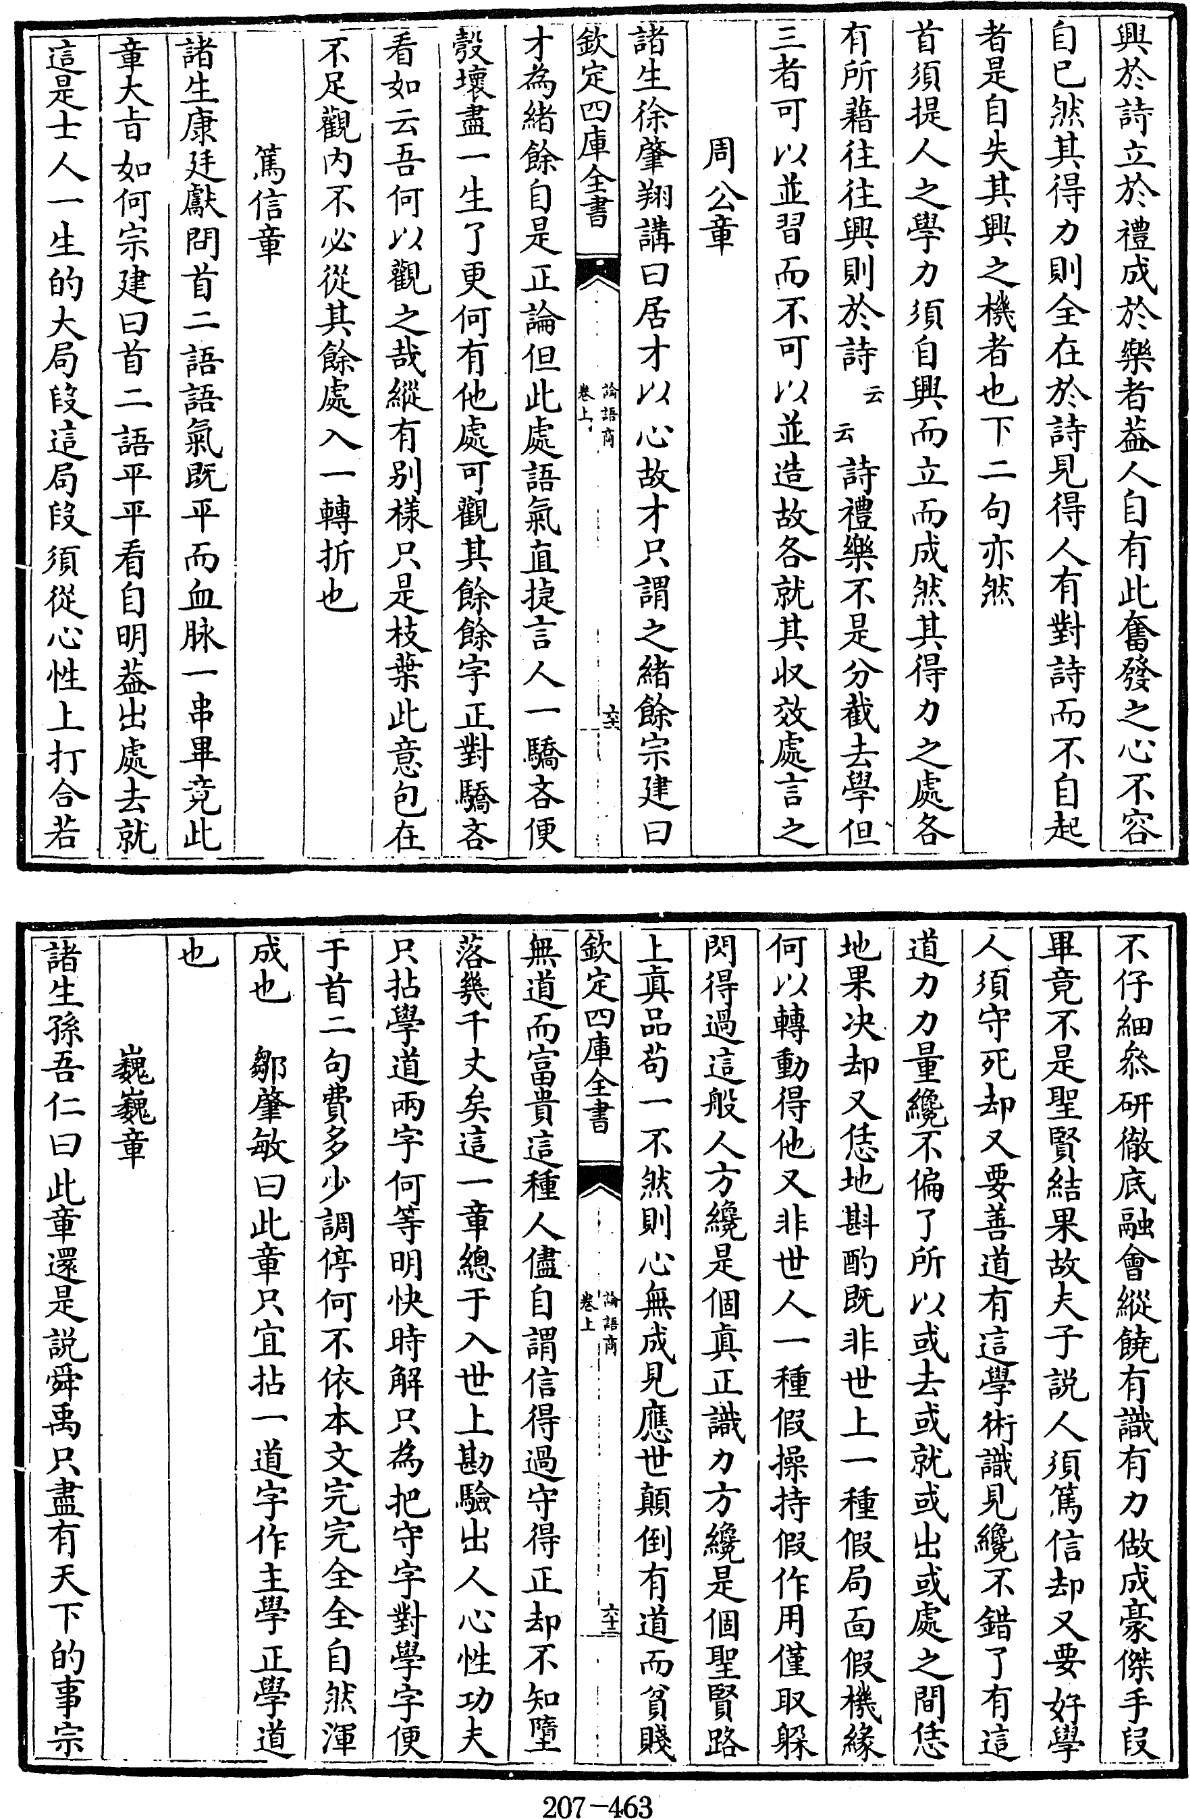 興於詩立於禮成於樂者葢人自有此奮發之心不容
自已然其得力則全在於詩見得人有對詩而不自起
者是自失其興之機者也下二句亦然
首須提人之學力須自興而立而成然其得力之處各
有所藉往往興則於詩云云詩禮樂不是分截去學但
三者可以並習而不可以並造故各就其收效處言之
周公章
諸生徐肇翔講曰居才以心故才只謂之緒餘宗建曰
欽定四庫全書
論語商
卷上
六十一
才為緒餘自是正論但此處語氣直捷言人一驕吝便
彀壞盡一生了更何有他處可觀其餘餘字正對驕吝
看如云吾何以觀之哉縱有别樣只是枝葉此意包在
不足觀内不必從其餘處入一轉折也
篤信章
諸生康廷獻問首二語語氣既平而血脉一串畢竟此
章大旨如何宗建曰首二語平平看自明葢出處去就
這是士人一生的大局段這局段須從心性上打合若
不仔細叅研徹底融會縱饒有識有力做成豪傑手段
畢竟不是聖賢結果故夫子説人須篤信却又要好學
人須守死却又要善道有這學術識見纔不錯了有這
道力力量纔不偏了所以或去或就或出或處之間恁
地果决却又恁地斟酌既非世上一種假局面假機緣
何以轉動得他又非世人一種假操持假作用僅取躱
閃得過這般人方纔是個真正識力方纔是個聖賢路
上真品苟一不然則心無成見應世顛倒有道而貧賤
欽定四庫全書
論語商
卷上
六十二
無道而富貴這種人儘自謂信得過守得正却不知墮
落幾千丈矣這一章總于入世上勘驗出人心性功夫
只拈學道兩字何等明快時解只為把守字對學字便
于首二句費多少調停何不依本文完完全全自然渾
成也　鄒肇敏曰此章只宜拈一道字作主學正學道
也
巍巍章
諸生孫吾仁曰此章還是説舜禹只盡有天下的事宗
207-463